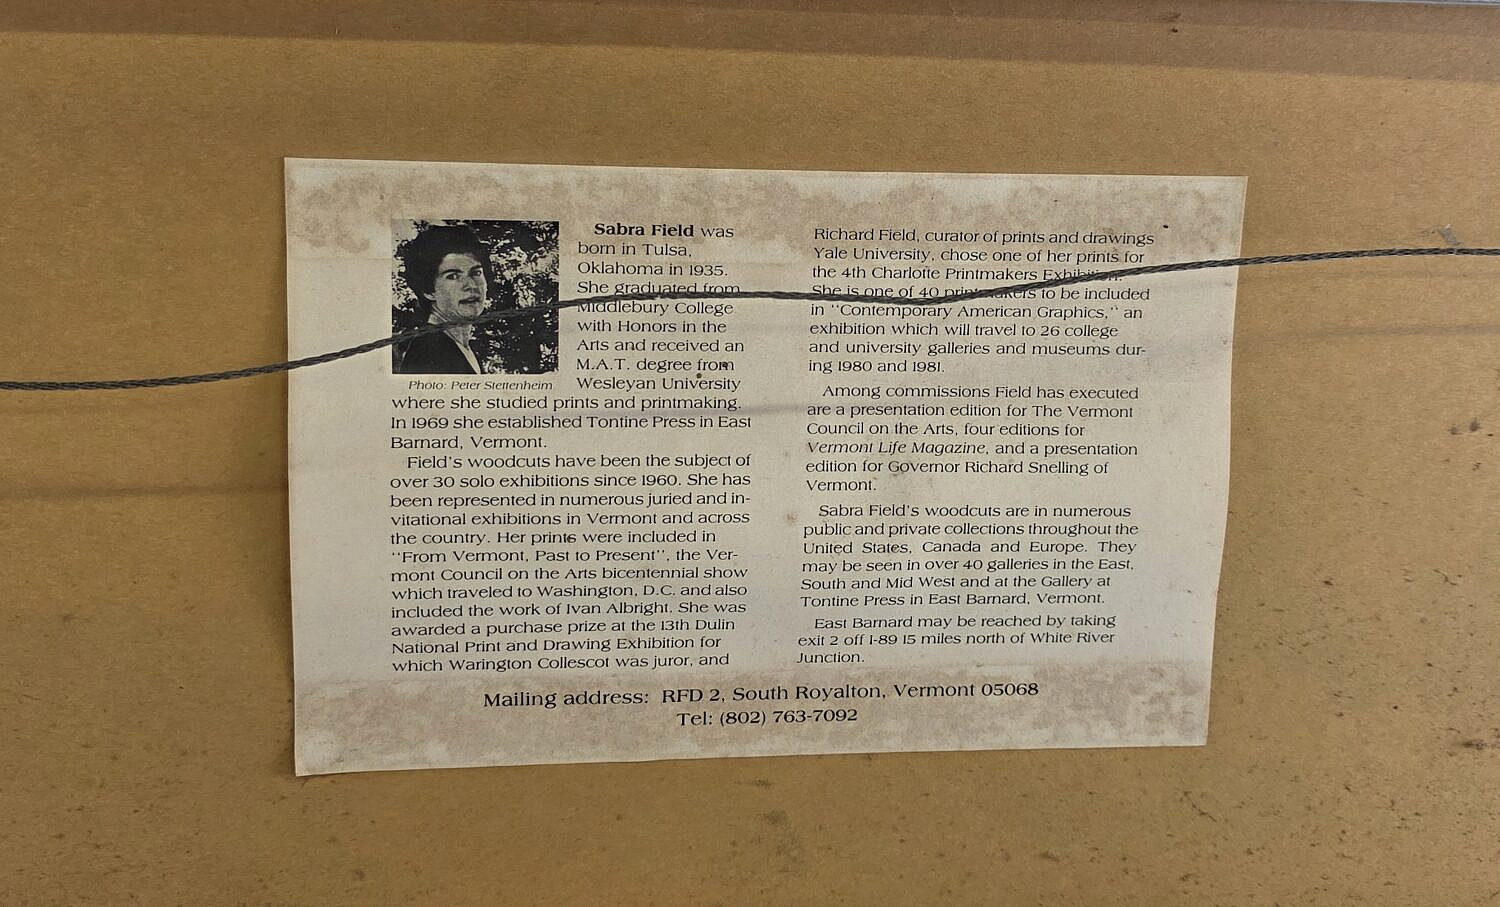 Sabra Field was
born in Tulsa,
Oklahoma in 1935.
She graduated from
Middlebury College
with Honors in the
Arts and received an
M.A.T. degree from
Wesleyan University
Photo: Peter Stettenheim
where she studied prints and printmaking.
In 1969 she established Tontine Press in East
Barnard, Vermont.
Field's woodcuts have been the subject of
over 30 solo exhibitions since 1960. She has
been represented in numerous juried and in-
vitational exhibitions in Vermont and across
the country. Her prints were included in
"From Vermont, Past to Present", the Ver-
mont Council on the Arts bicentennial show
which traveled to Washington, D.C. and also
included the work of Ivan Albright. She was
awarded a purchase prize at the 13th Dulin
National Print and Drawing Exhibition for
which Warington Collescot was juror, and
Richard Field, curator of prints and drawings
Yale University, chose one of her prints for
the 4th Charlotte Printmakers Exhibition.
She is one of 40 printmakers to be included
in "Contemporary American Graphics," an
exhibition which will travel to 26 college
and university galleries and museums dur-
ing 1980 and 1981.
Among commissions Field has executed
are a presentation edition for The Vermont
Council on the Arts, four editions for
Vermont Life Magazine, and a presentation
edition for Governor Richard Snelling of
Vermont.
Sabra Field's woodcuts are in numerous
public and private collections throughout the
United States, Canada and Europe. They
may be seen in over 40 galleries in the East,
South and Mid West and at the Gallery at
Tontine Press in East Barnard, Vermont.
East Barnard may be reached by taking
exit 2 off I-89 15 miles north of White River
Junction.
Mailing address: RFD 2, South Royalton, Vermont 05068
Tel: (802) 763-7092